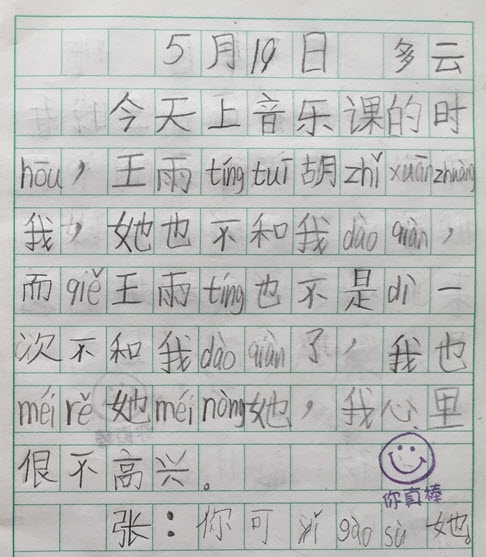 5月19日 多云
今天上音乐课的时
hōu，王雨tíng tuī胡zhǐ xuān zhuàng
我，她也不和我dào qiàn，
而qiě王雨tíng也不是dì一
次不和我dào qiàn了，我也
méi rě她méi nòng她，我心里
很不高兴。
你真棒
张：你可yǐ gào sù她。